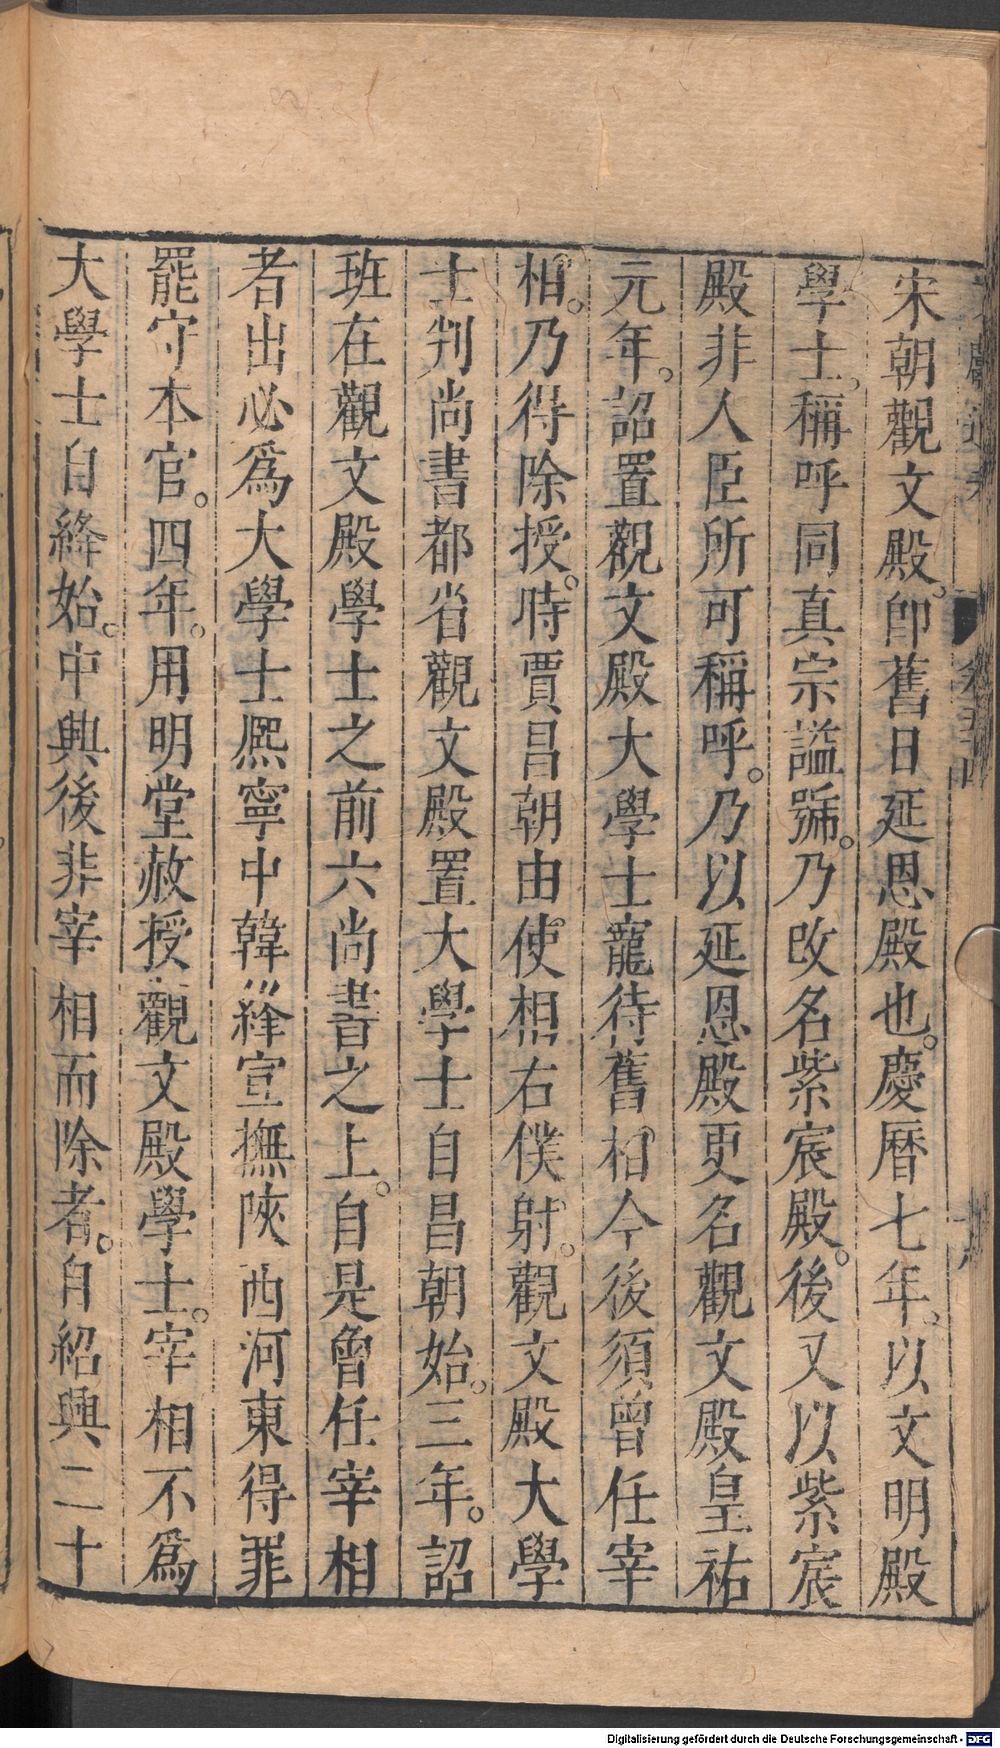 宋朝觀文殿。卽舊日延恩殿也。慶曆七年。以文明殿
學士。稱呼同真宗謚號。乃改名紫宸殿。後又以紫宸
殿非人臣所可稱呼。乃以延恩殿更名觀文殿皇祐
元年。詔置觀文殿大學士寵待舊相今後須曾任宰
相。乃得除授。時賈昌朝由使相右僕射。觀文殿大學
士判尚書都省觀文殿置大學士自昌朝始。三年。詔
班在觀文殿學士之前六尚書之上。自是曾任宰相
者出必爲大學士熈寧中韓絳宣撫陝西河東得罪
罷守本官。四年。用明堂赦授觀文殿學士。宰相不爲
大學士自絳始。中興後非宰相而除者。自紹興二十
卷五十四
Digitalisierung gefördert durch die Deutsche Forschungsgemeinschaft - DFG